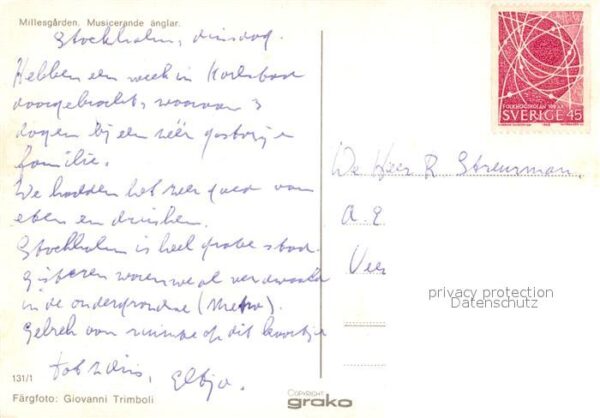 Millesgården. Musicerande änglar.
Stockholm, dinsdag.
Hebben een week in Karlstad
doorgebracht, waarvan 3
dagen bij een zéér gastvrije
familie.
We hadden het zeer goed van
eten en drinken.
Stockholm is heel grote stad.
Gisteren waren we al verdwaald
in de ondergrondse (Metro).
Gebrek aan ruimte op dit kaartje
tot ziens,
131/1
Färgfoto: Giovanni Trimboli
COPYRIGHT
grako
FOLKHÖGSKOLAN 100 ÅR
SVERIGE 45
De Heer R Streurman.
A.E
Veen
privacy protection
Datenschutz